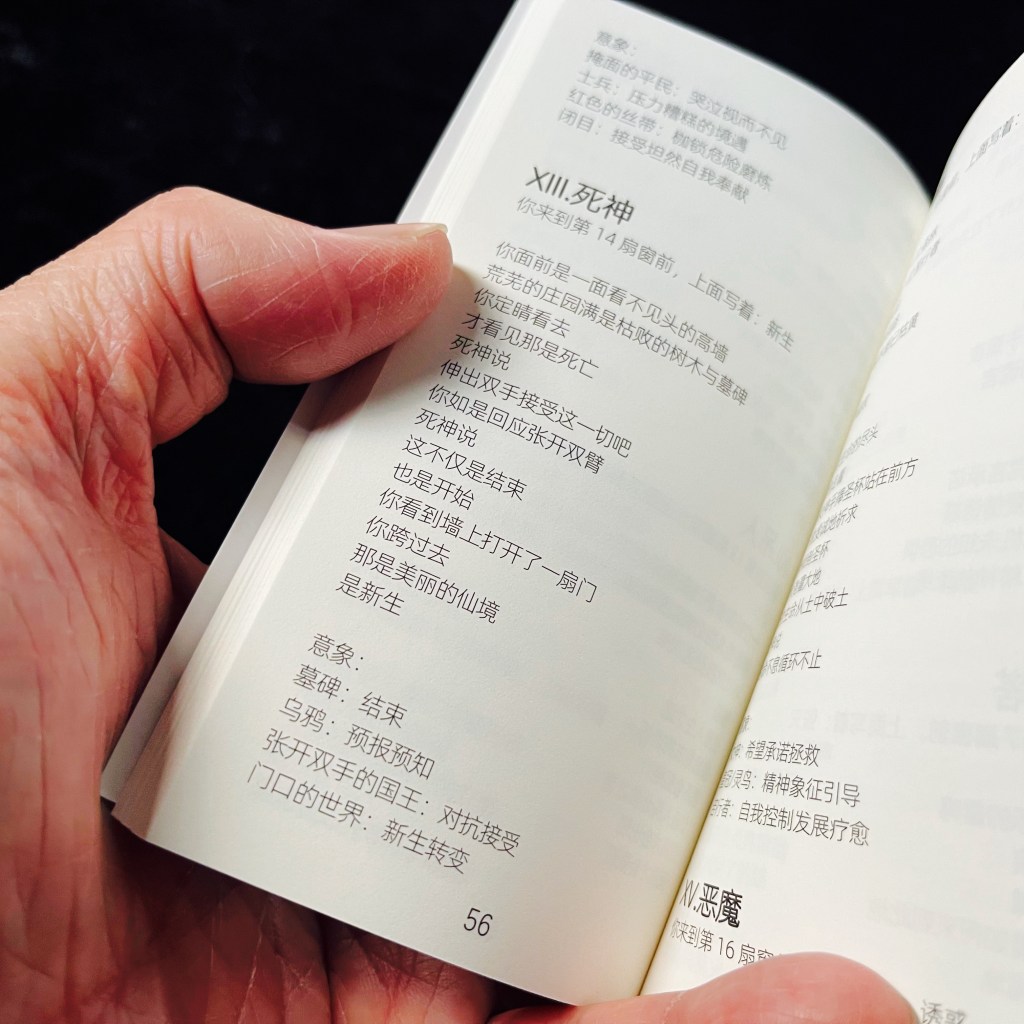 意象：
掩面的平民：哭泣视而不见
士兵：压力糟糕的境遇
红色的丝带：枷锁危险磨炼
闭目：接受坦然自我奉献
XIII.死神
你来到第 14 扇窗前，上面写着：新生
你面前是一面看不见头的高墙
荒芜的庄园满是枯败的树木与墓碑
你定睛看去
才看见那是死亡
死神说
伸出双手接受这一切吧
你如是回应张开双臂
死神说
这不仅是结束
也是开始
你看到墙上打开了一扇门
你跨过去
那是美丽的仙境
是新生
意象：
墓碑：结束
乌鸦：预报预知
张开双手的国王：对抗接受
门口的世界：新生转变
56
上面写着：
圣杯站在前方
祈求
圣杯
大地
从土中破土
循环不止
希望承诺拯救
灵鸟：精神象征引导
者：自我控制发展疗愈
XV.恶魔
你来到第 16 扇窗
诱惑